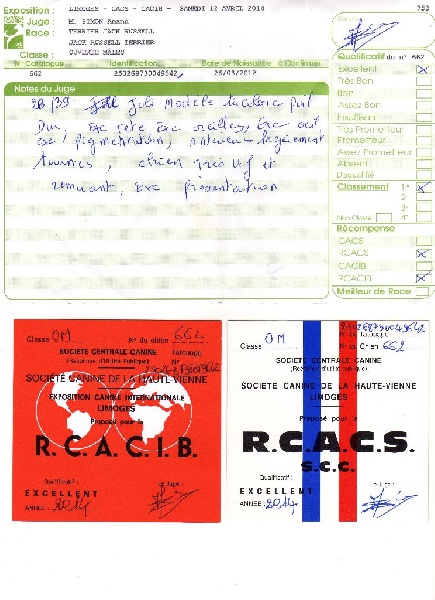 Exposition : LIMOGES - CACS - CACIB - SAMEDI 12 AVRIL 2014 753
Juge : M. SIMON
Race : TERRIER JACK RUSSELL
JACK RUSSELL TERRIER
Classe : OUVERTE MALES
N° Catalogue Identification Date de Naissance à Confirmer
662 25/03/2012
Notes du Juge
Joli Modèle tricolore
Exc tête Exc oreilles, Exc
exc pigmentation, légèrement
tournés, chien très vif et
remuant, Exc présentation
Qualificatif du n° 662
Excellent
Très Bon
Bon
Assez Bon
Insuffisant
Très Prometteur
Prometteur
Assez Prometteur
Absent
Disqualifié
Classement 1°
2°
3°
Non Classé 4°
Récompense
CACS
RCACS
CACIB
RCACIB
Meilleur de Race
Classe OM N° du chien 662
SOCIÉTÉ CENTRALE CANINE
(Reconnue d'Utilité Publique)
Tatouage
N°
SOCIÉTÉ CANINE DE LA HAUTE-VIENNE
EXPOSITION CANINE INTERNATIONALE
LIMOGES
Proposé pour le
R.C.A.C.I.B.
Qualificatif : Le Juge :
EXCELLENT
ANNÉE : 2014
Classe OM
N° Tatouage
N° du Chien 662
SOCIÉTÉ CENTRALE CANINE
(Reconnue d'utilité publique)
SOCIÉTÉ CANINE DE LA HAUTE-VIENNE
LIMOGES
Proposé pour le
R.C.A.C.S.
S.C.C.
Qualificatif : Le Juge :
EXCELLENT
ANNÉE : 2014